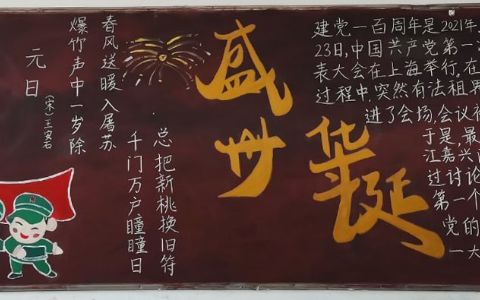 元日
(宋)王安石
爆竹声中一岁除
春风送暖入屠苏
千门万户瞳瞳日
总把新桃换旧符
盛世华诞
建党一百周年是2021年
23日,中国共产党第一
表大会在上海举行,在
过程中,突然有法租界
进了会场,会议
于是,最
江嘉兴
过讨论
第一个
党的
一大